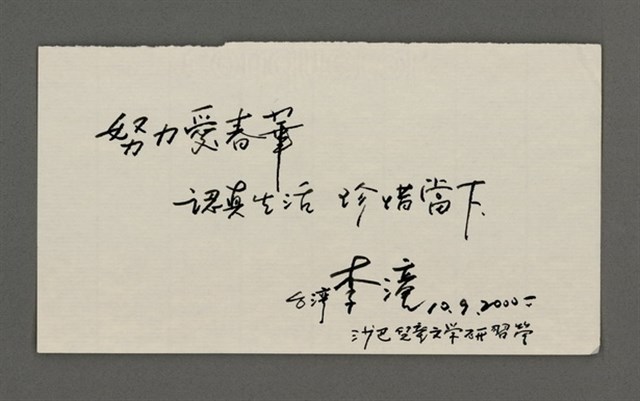 努力愛春華
認真生活 珍惜當下
台灣 李潼 10.9.2000
沙巴兒童文学研習營